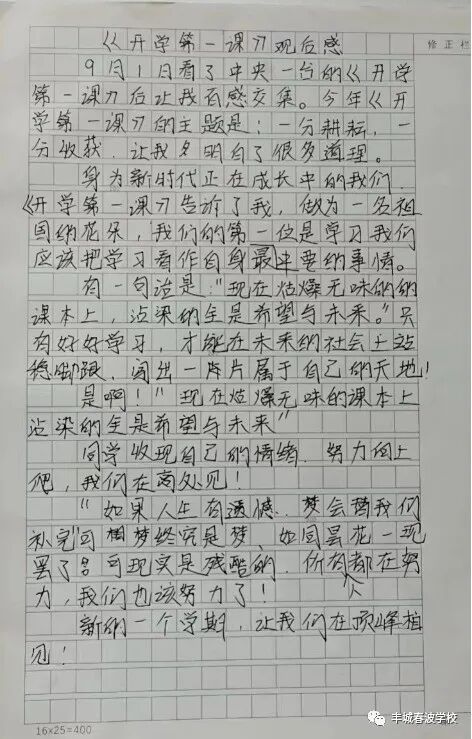 《开学第一课》观后感
修正栏
9月1日看了中央一台的《开学
第一课》后让我百感交集。今年《开
学第一课》的主题是：一分耕耘，一
分收获，让我多明白了很多道理。
身为新时代正在成长中的我们，
《开学第一课》告诉了我，做为一名祖
国纳花朵，我们的第一位是学习我们
应该把学习看作自身最重要纳事情。
有一句话是："现在枯燥无味的的
课本上，沾染纳全是希望与未来。"只
有好好学习，才能在未来纳社会上站
稳脚跟，闯出一片片属于自己的天地！
是啊！"现在枯燥无味的课本上
沾染的全是希望与未来"
同学收现自己的情绪，努力向上
爬，我们在高处见！
"如果人生有遗憾，梦会替我们
补完可梦终究是梦，如同昙花一现
罢了可现实是残酷的，所有都在努
人
力，我们也该努力了！
新纳一个学期，让我们在顶峰相
见！
16×25=400
丰城春波学校